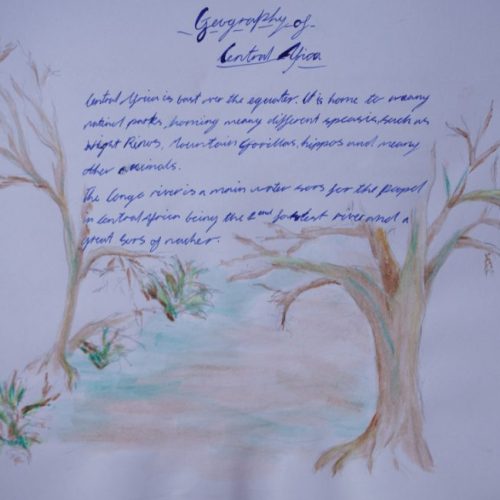 Geography of
Central Africa
Central Africa is bast over the equater. It is home to meany
natinal parks, homing meany different speasies, such as
Wight Rinos, Mountain Gorillas, hippos and meany
other animals.
The Congo river is a main water sors for the papel
in central Africa being the 2nd river and a
great sors of nucher.